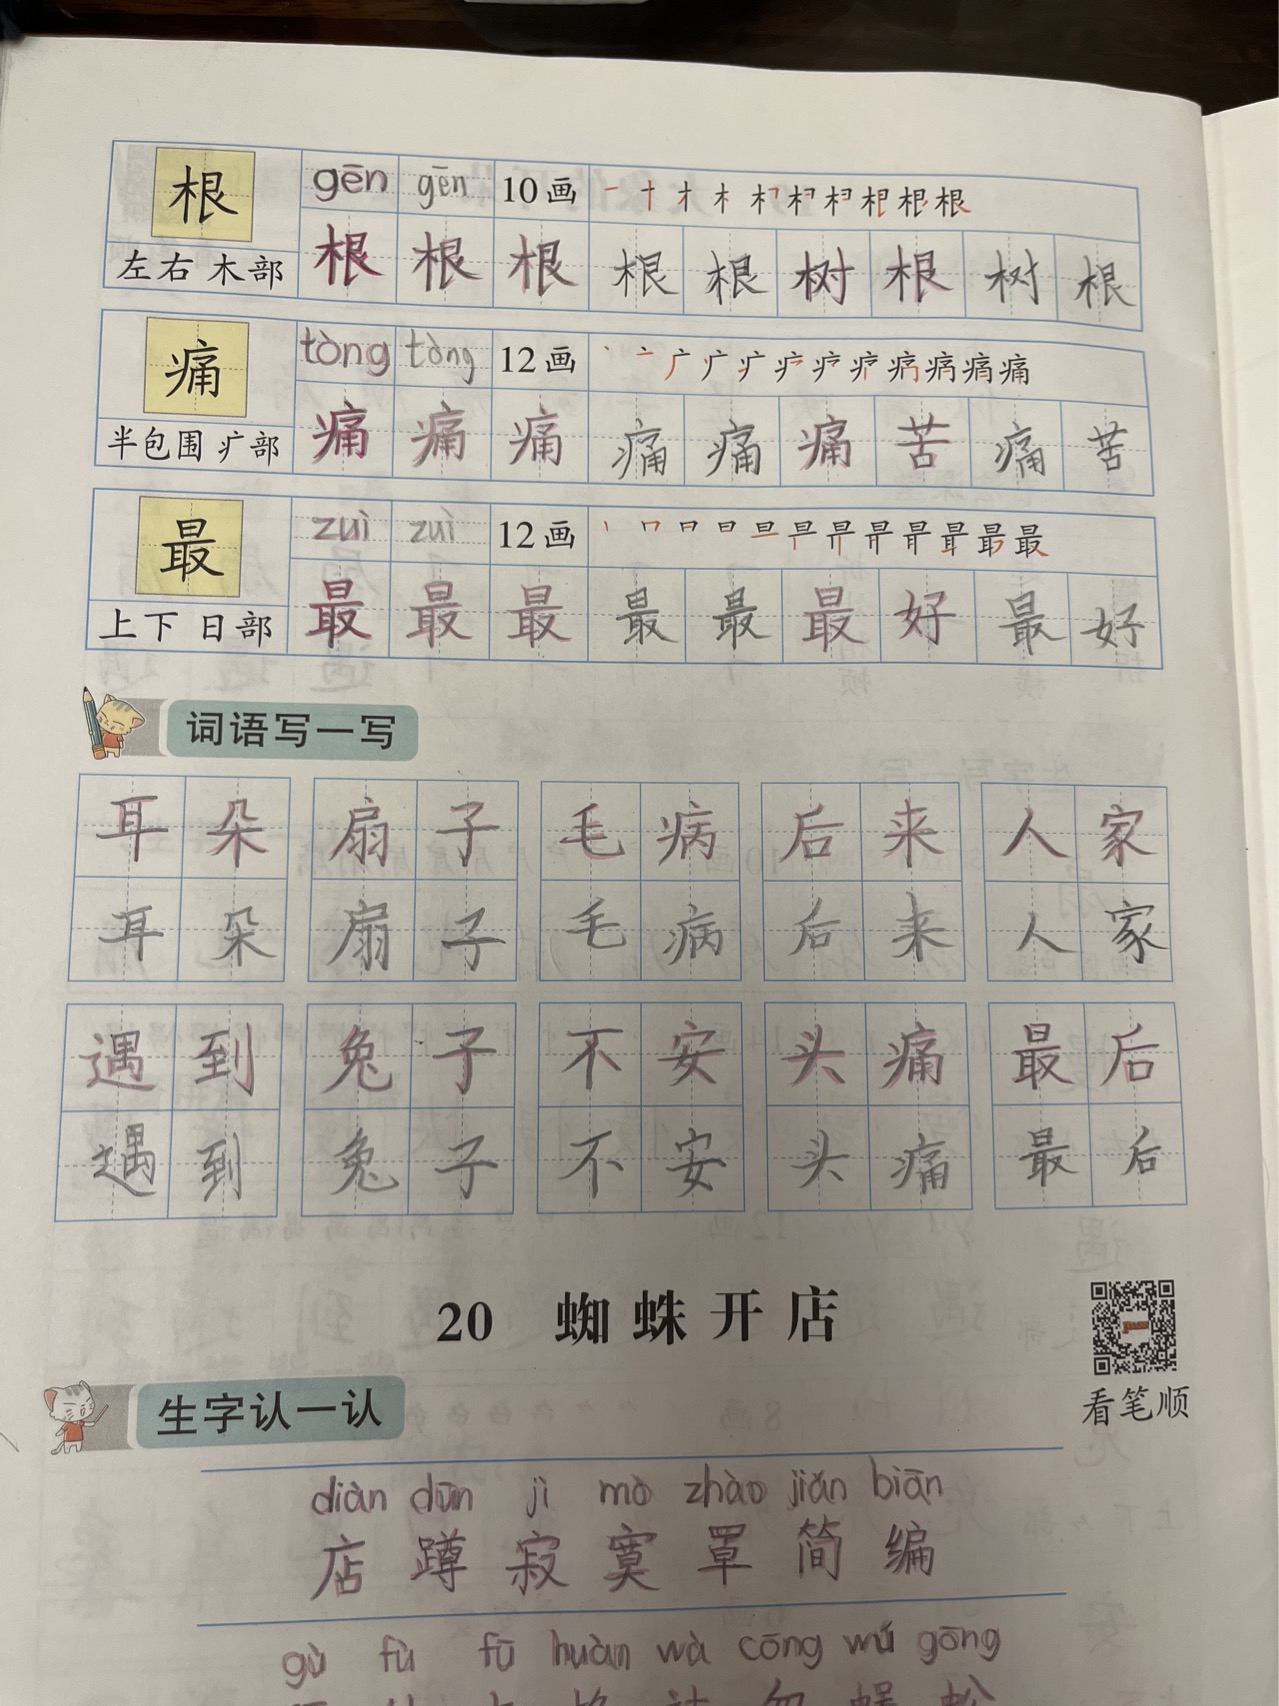 根 gēn gēn 10画 一 十 才 木 根 根
左右 木部 根 根 根 根 根 树 根 树 根
痛 tòng tòng 12画 丶 亠 广 疒 痛
半包围 疒部 痛 痛 痛 痛 痛 痛 苦 痛 苦
最 zuì zuí 12画 丨 冂 日 旦 最
上下 日部 最 最 最 最 最 最 好 最 好
词语写一写
耳朵 扇子 毛病 后来 人家
耳朵 扇子 毛病 后来 人家
遇到 兔子 不安 头痛 最后
遇到 兔子 不安 头痛 最后
20 蜘蛛开店
看笔顺
生字认一认
diàn dūn jì mò zhào jiǎn biān
店 蹲 寂 寞 罩 简 编
gù fù fū huàn wà cōng wú gōng